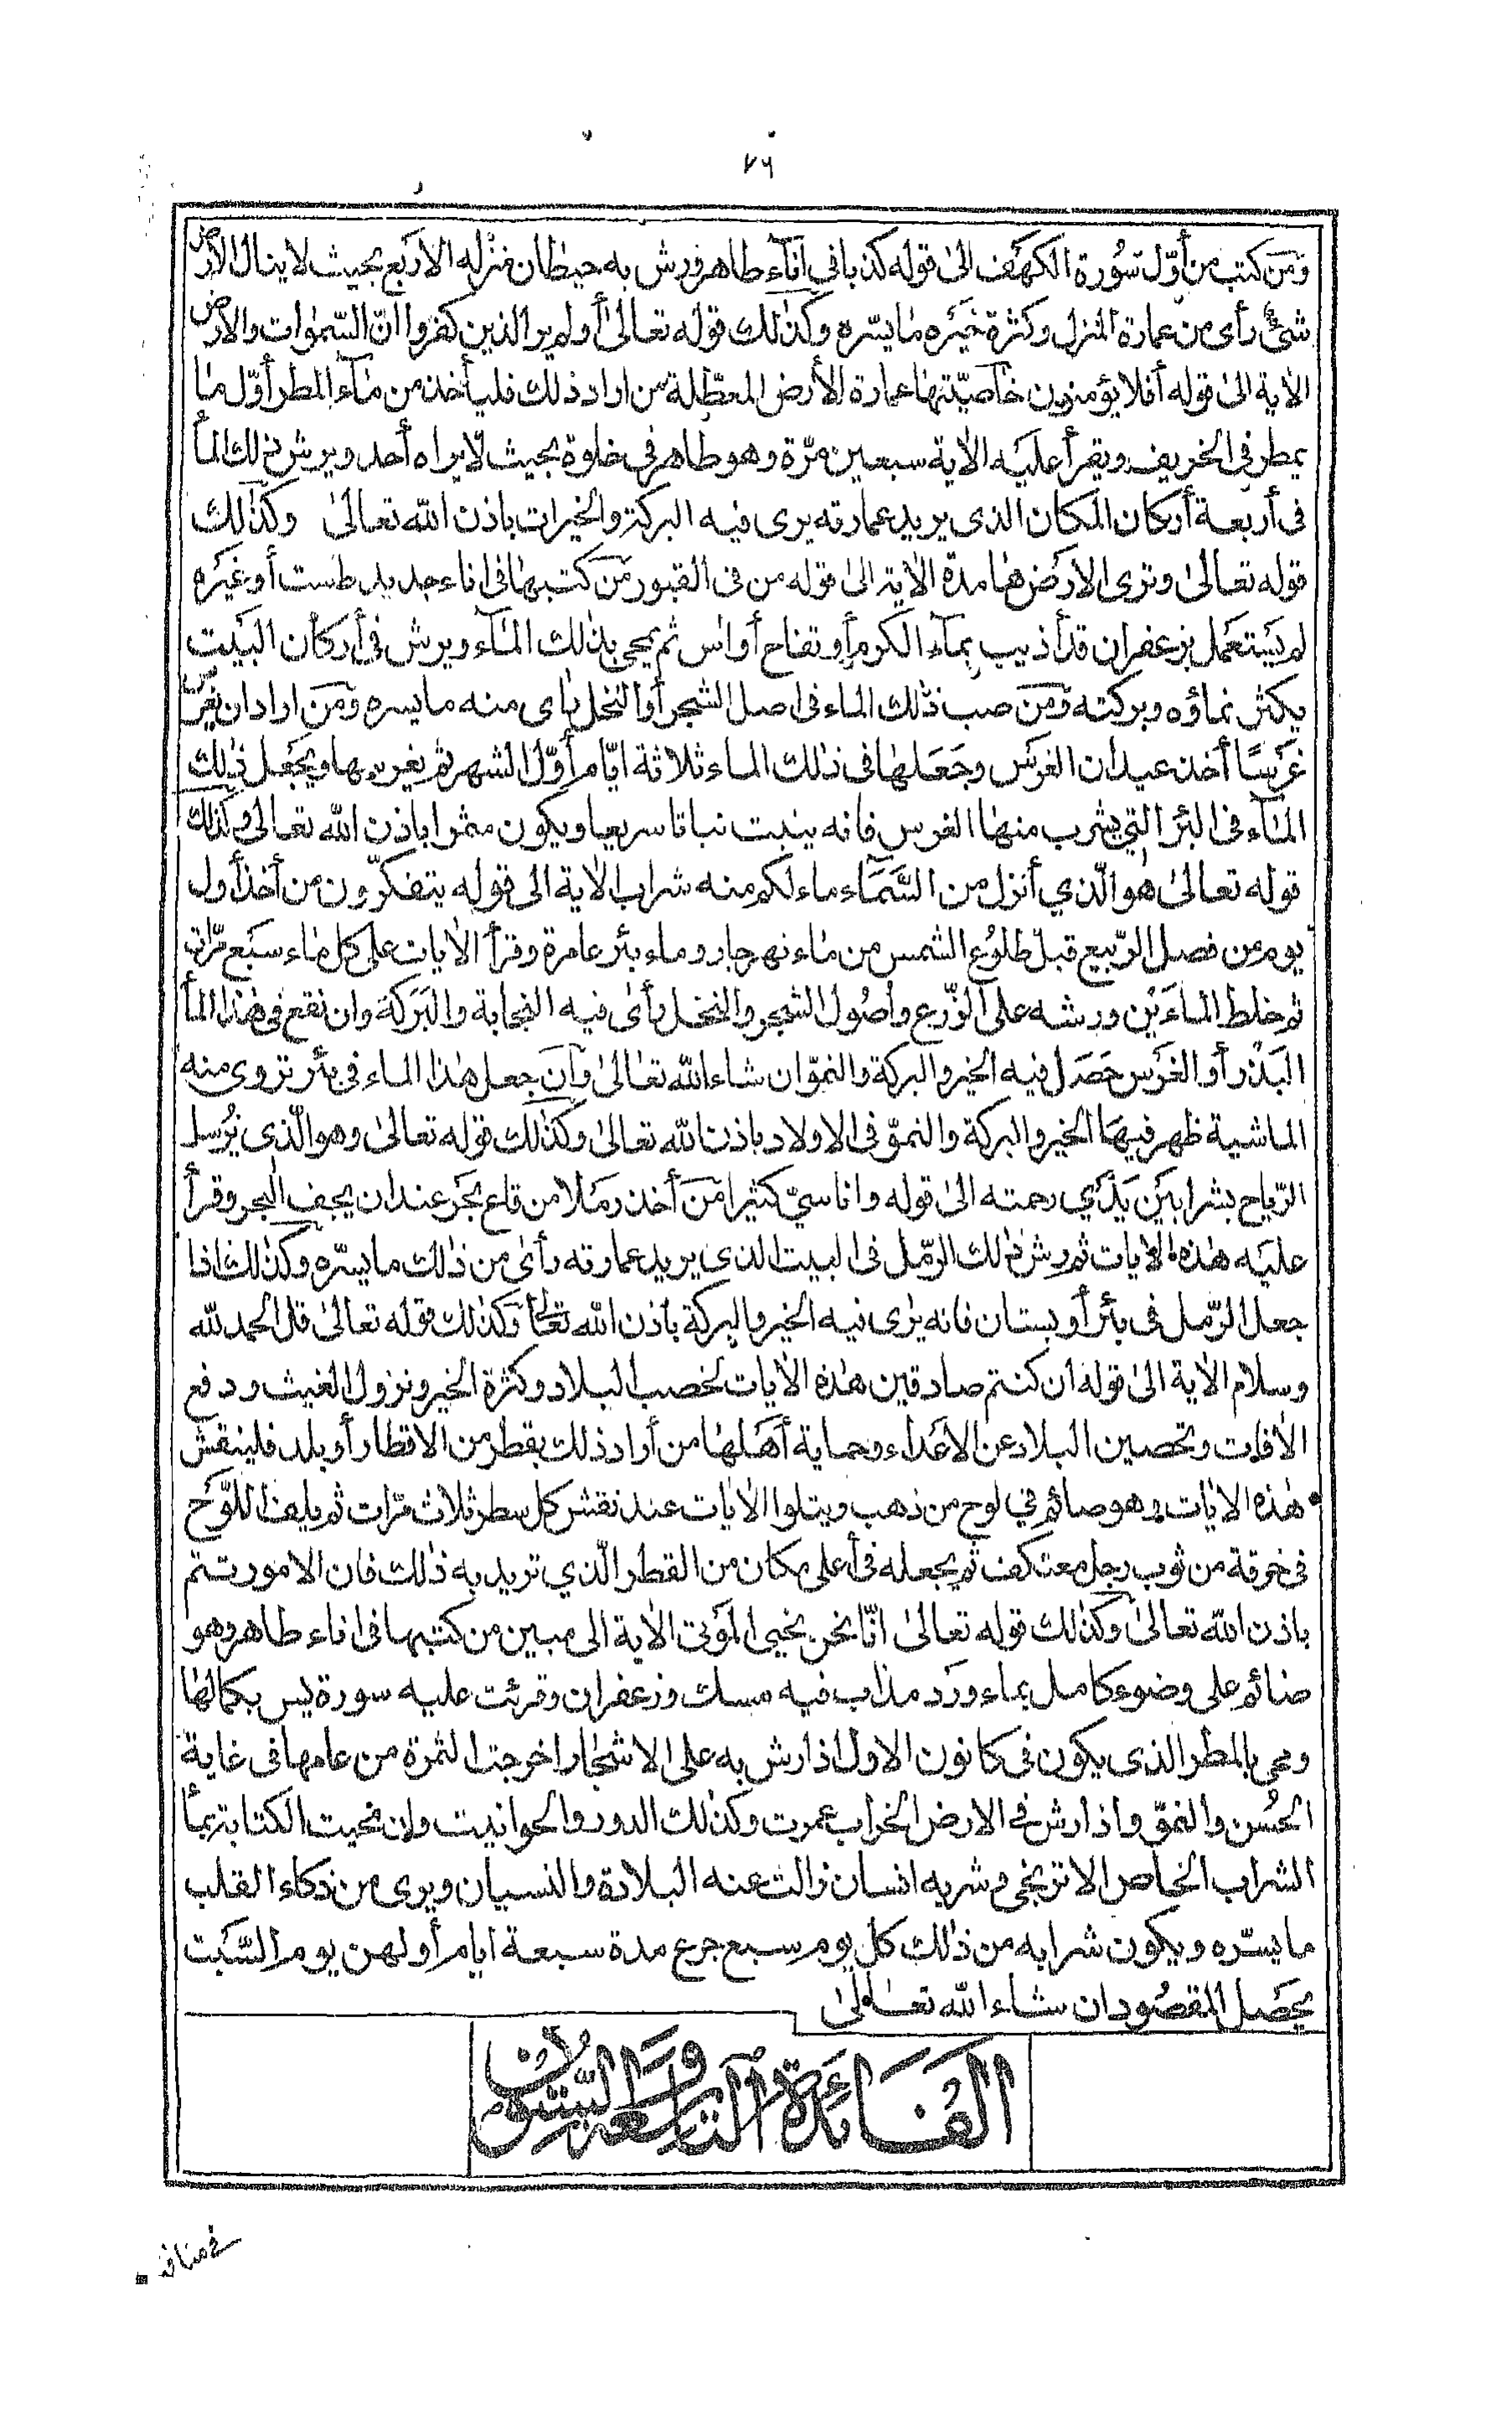 ٧٦
ومن كتب من أوّل سُورة الكهف الىٰ قوله كذبا في اناء طاهر ورش به حيطان منزله الاربع بحيث لا ينال الارض
شئ رأى من عمارة المنزل وكثرة خيره ما يسّره وكذلك قوله تعالىٰ أولم ير الذين كفروا انّ السّمٰوات والارض
الاية الىٰ قوله أفلا يؤمنون خاصيّتها عمارة الأرض المعطّلة من اراد ذلك فليأخذ من ماء المطر أوّل ما
يمطر في الخريف ويقرأ عليه الاية سبعين مرّة وهو طاهر في خلوة بحيث لا يراه أحد ويرش ذلك المأ
فى أربعة أركان المكان الذى يريد عمارته يرى فيه البركة والخيرات باذن الله تعالىٰ وكذٰلك
قوله تعالىٰ وترى الارض هامدة الاية الىٰ قوله من فى القبور من كتبها فى اناء جديد طست أو غيره
لم يستعمل بزعفران قد أذيب بماء الكرم أو تفاح أو اس ثم يمحى بذلك الماء ويرش في أركان البيت
يكثر نماؤه وبركته ومن صب ذٰلك الماء فى اصل الشجر أو النخل رأى منه ما يسره ومن اراد ان يغرس
غرسًا أخذ عيدان الغرس وجعلها فى ذلك الماء ثلاثة ايّام أوّل الشهر ثم يغرسها ويجعل ذٰلك
الماء فى البئر التي يشرب منها الغرس فانه ينبت نباتا سريعا ويكون مثمرا باذن الله تعالىٰ وكذلك
قوله تعالىٰ هو الّذي أنزل من السّماء ماء لكم منه شراب الاية الى قوله يتفكّرون من أخذ أول
يوم من فصل الرّبيع قبل طلوع الشمس من ماء نهر جار وماء بئر عامرة وقرأ الايات على كل ماء سبع مرّات
ثم خلط الماءَين ورشه على الزّرع وأصُول الشجر والنخل رأى فيه النجابة والبَركة وان نقع فى هذا المأ
البَذر أو الغرس حَصَل فيه الخير والبركة والنموّ ان شاء الله تعالىٰ وان جعل هذا الماء فى بئر تروى منه
الماشية ظهر فيها الخير والبركة والنموّ فى الاولاد باذن الله تعالىٰ وكذٰلك قوله تعالىٰ وهو الّذى يُرسل
الرّياح بشرا بين يدَي رحمته الىٰ قوله واناسيّ كثيرا من أخذ رملا من قاع بحر عند ان يجف البحر وقرأ
عليه هذه الايات ثم رش ذلك الرّمل فى البيت الذى يريد عمارته رأىٰ من ذٰلك ما يسّره وكذلك اذا
جعل الرّمل فى بئر أو بستان فانه يرى فيه الخير والبركة باذن الله تعالىٰ وكذلك قوله تعالىٰ قل الحمد لله
وسلام الاية الىٰ قوله ان كنتم صادقين هذه الايات لخصب البلاد وكثرة الخير ونزول الغيث ودفع
الافات وتحصين البلاد عن الاعداء وحماية أهلها من أراد ذلك بقطر من الاقطار أو بلد فلينقش
هذه الايات وهو صائم في لوح من ذهب ويتلوا الايات عند نقش كل سطر ثلاث مرّات ثم يلف اللوّح
فى خرقة من ثوب رجل معتكف ثم يجعله فى أعلى مكان من القطر الّذي تريد به ذٰلك فان الامور تتم
باذن الله تعالىٰ وكذٰلك قوله تعالىٰ انّا نحن نحيي الموتى الاية الى مبين من كتبها فى اناء طاهر وهو
صائم على وضوء كامل بماء ورد مذاب فيه مسك وزعفران وقرئت عليه سورة يس بكمالها
ومحى بالمطر الذى يكون فى كانون الاول اذا رش به على الاشجار اخرجت الثمرة من عامها فى غاية
الحُسن والنموّ واذا رش فى الارض الخراب عمرت وكذٰلك الدور والحوانيت وان محيت الكتابة بمأ
الشراب الخاص الاترنجى وشربه انسان زالت عنه البلادة والنسيان ويرى من ذكاء القلب
ما يسّره ويكون شرابه من ذٰلك كل يوم سبع جرع مدة سبعة ايام أولهن يوم السّبت
يحصل المقصُود ان شاء الله تعالىٰ
الفَائدة التاسعة والستون
فى منافع